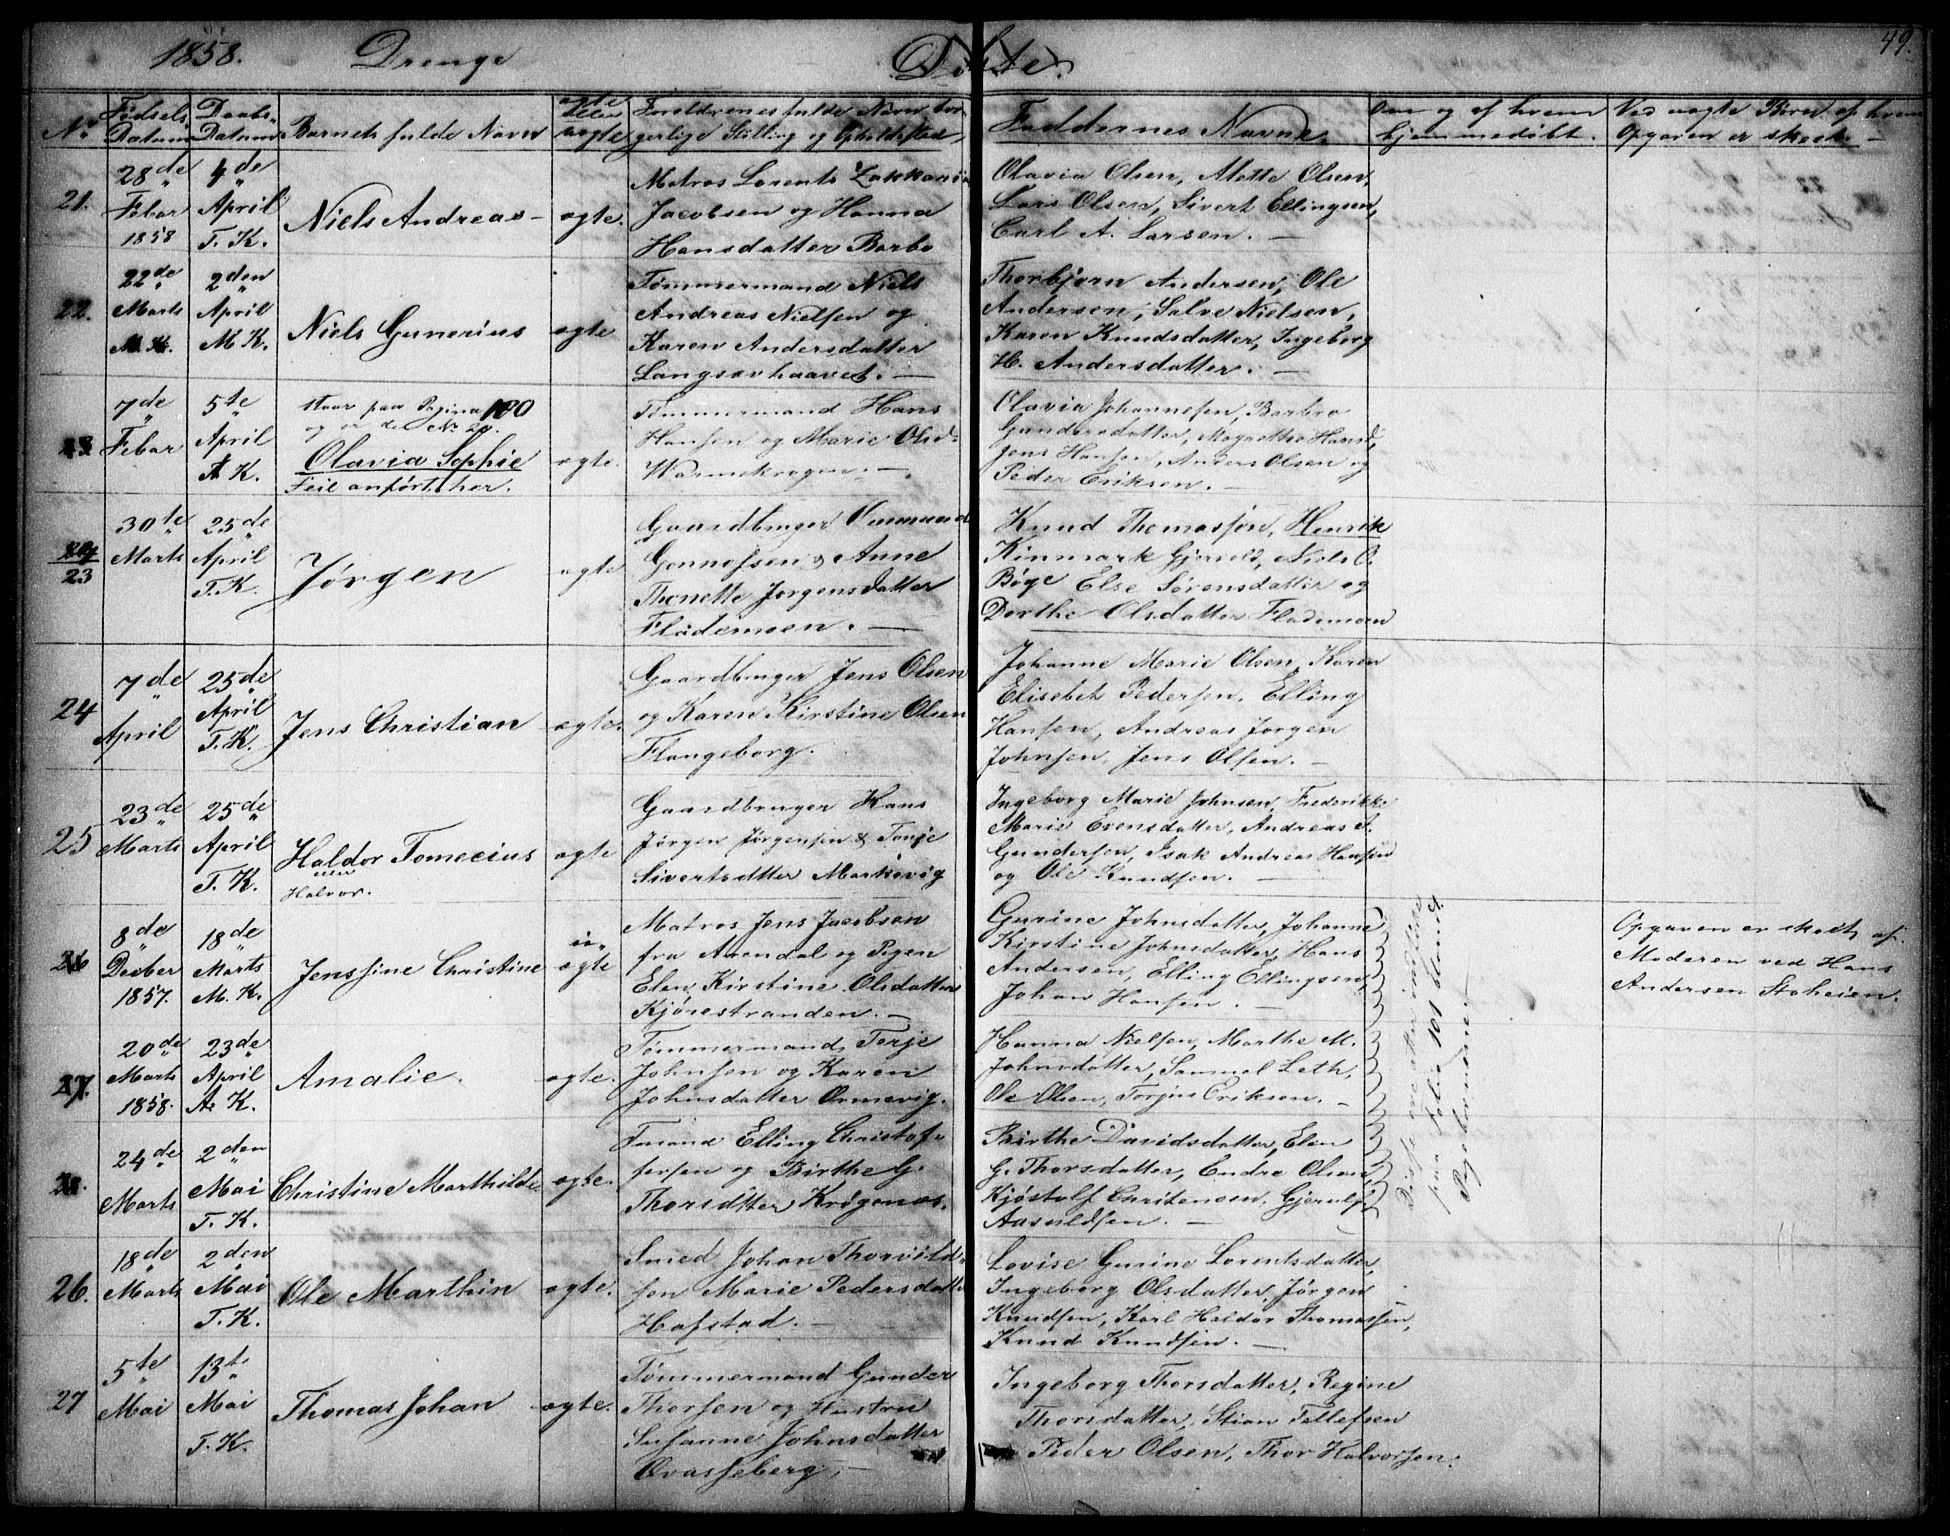 1858. Drenge Døbte. 49.
No Fødsels Datum Daabs Datum Barnets fulde Navn ægte eller uægte Forældrenes fulde Navn, borgerlige Stilling og Opholdssted, Faddernes Navne. Om og af hvem hjemmedøbt. Ved uægte Børn af hvem Opgaven er skeet. —
21. 28de Febar 1858 4de April T. K. Niels Andreas — ægte.
Matros Lorents Zakkarias
Jacobsen og Hanna
Hansdatter Barbo
Olavia Olsen, Mette Olsen,
Lars Olsen, Sivert Ellingsen,
Carl A. Larsen. —
22. 22de Marts M. K. 2den April M. K. Niels Gunerius ægte
Tømmermand Niels
Andreas Nielsen og
Karen Andersdatter
Langsævhaavet. —
Thorbjørn Andersen, Ole
Andersen, Salve Nielsen,
Karen Knudsdatter, Ingeborg
H. Andersdatter. —
23. 7de Febar 5te April A K.
staar paa Pagina 100
og er der No 20.
Olavia Sophie
Feil anført her.
ægte.
Tømmermand Hans
Hansen og Marie Olsd.
Warmekrogen. —
Olavia Johannesen, Barbro
Gundersdatter, Magrethe Hansd,
Jens Hansen, Anders Olsen og
Peder Eriksen. —
24/23 30te Marts 25de April T. K. Jørgen ægte
Gaardbruger
Gonnofsen & Anne
Thonette Jørgensdatter
Flademoen. —
Knud Thomassøn, Henrik
Kinmark Niels O.
Bøge Else Sørensdatter og
Dorthe Olsdatter Flademoen
24 7de April 25de April T. K. Jens Christian ægte.
Gaardbruger Jens Olsen
og Karen Kirstine Olsen
Flangeborg.
Johanne Marie Olsen, Karen
Elisebet Pedersen, Elling
Hansen, Andreas Jørgen
Johnsen, Jens Olsen. —
25 23de Marts 25de April T. K. Haldor Tomecius
eller
Halvor.
ægte
Gaardbruger Hans
Jørgen Jørgensen & Tonje
Sivertsdtter Markevig
Ingeborg Marie Johnsen, Frederikke
Marie Evensdatter, Andreas A.
Gundersen, Isak Andreas Hansen
og Ole Knudsen. —
26 8de Decber 1857. 18de Marts M. K. Jenssine Christine u- ægte
Matros Jens Jacobsen
fra Arendal og Pigen
Elen Kirstine Olsdatter
Kjørestranden. —
Gurine Johnsdatter, Johanne
Kirstine Johnsdatter, Hans
Andersen, Elling Ellingsen,
Johan Hansen. —
Opgaven er skeet af
Moderen ved Hans
Andersen Stoheien.
27. 20de Marts 1858. 23de April A. K. Amalie. ægte.
Tømmermand Terje
Johnsen og Karen
Johnsdatter Ormevig.
Hanna Nielsen, Marthe M.
Johnsdatter, Samuel Leth,
Ole Olsen, Torjus Eriksen. —
28. 24de Marts 2den Mai T. K. Christine Marthilde ægte.
Elling Christof-
fersen og Birthe G.
Thorsdtter Krøgenæs.
Birthe Davidsdatter, Elen
G. Thorsdatter, Endre Olsen,
Kjøstolf Christensen,
Aasuldsen. —
Disse ere atter indførte
paa Folio 101 blandt
Pigebørnene. —
26. 18de Marts 2den Mai T. K. Ole Marthin ægte.
Smed Johan Thorvild-
sen Marie Pedersdatter
Hafstad. —
Lovise Gurine Lorentsdatter,
Ingeborg Olsdatter, Jørgen
Knudsen, Karl Haldor Thomassen,
Knud Knudsen. —
27 5te Mai 13te Mai T. K. Thomas Johan ægte.
Tømmermand Gunder
Thorsen og Hustru
Susanne Johnsdatter
Ovasseberg, —
Ingeborg Thorsdatter, Regine
Thorsdatter, Stian Tellefsen
Peder Olsen, Thor Halvorsen.